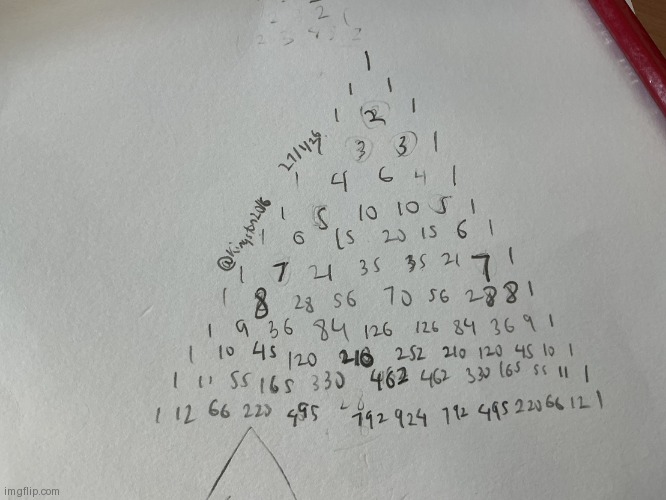 2 1
1 2 3 4 2 2
1
1 1
1 2 1
27/4/26
3 3 1
1 4 6 4 1
@Kingston2016
1 5 10 10 5 1
1 6 15 20 15 6 1
1 7 21 35 35 21 7 1
1 8 28 56 70 56 28 8 1
1 9 36 84 126 126 84 36 9 1
1 10 45 120 210 252 210 120 45 10 1
1 11 55 165 330 462 462 330 165 55 11 1
1 12 66 220 495 792 924 792 495 220 66 12 1
imgflip.com